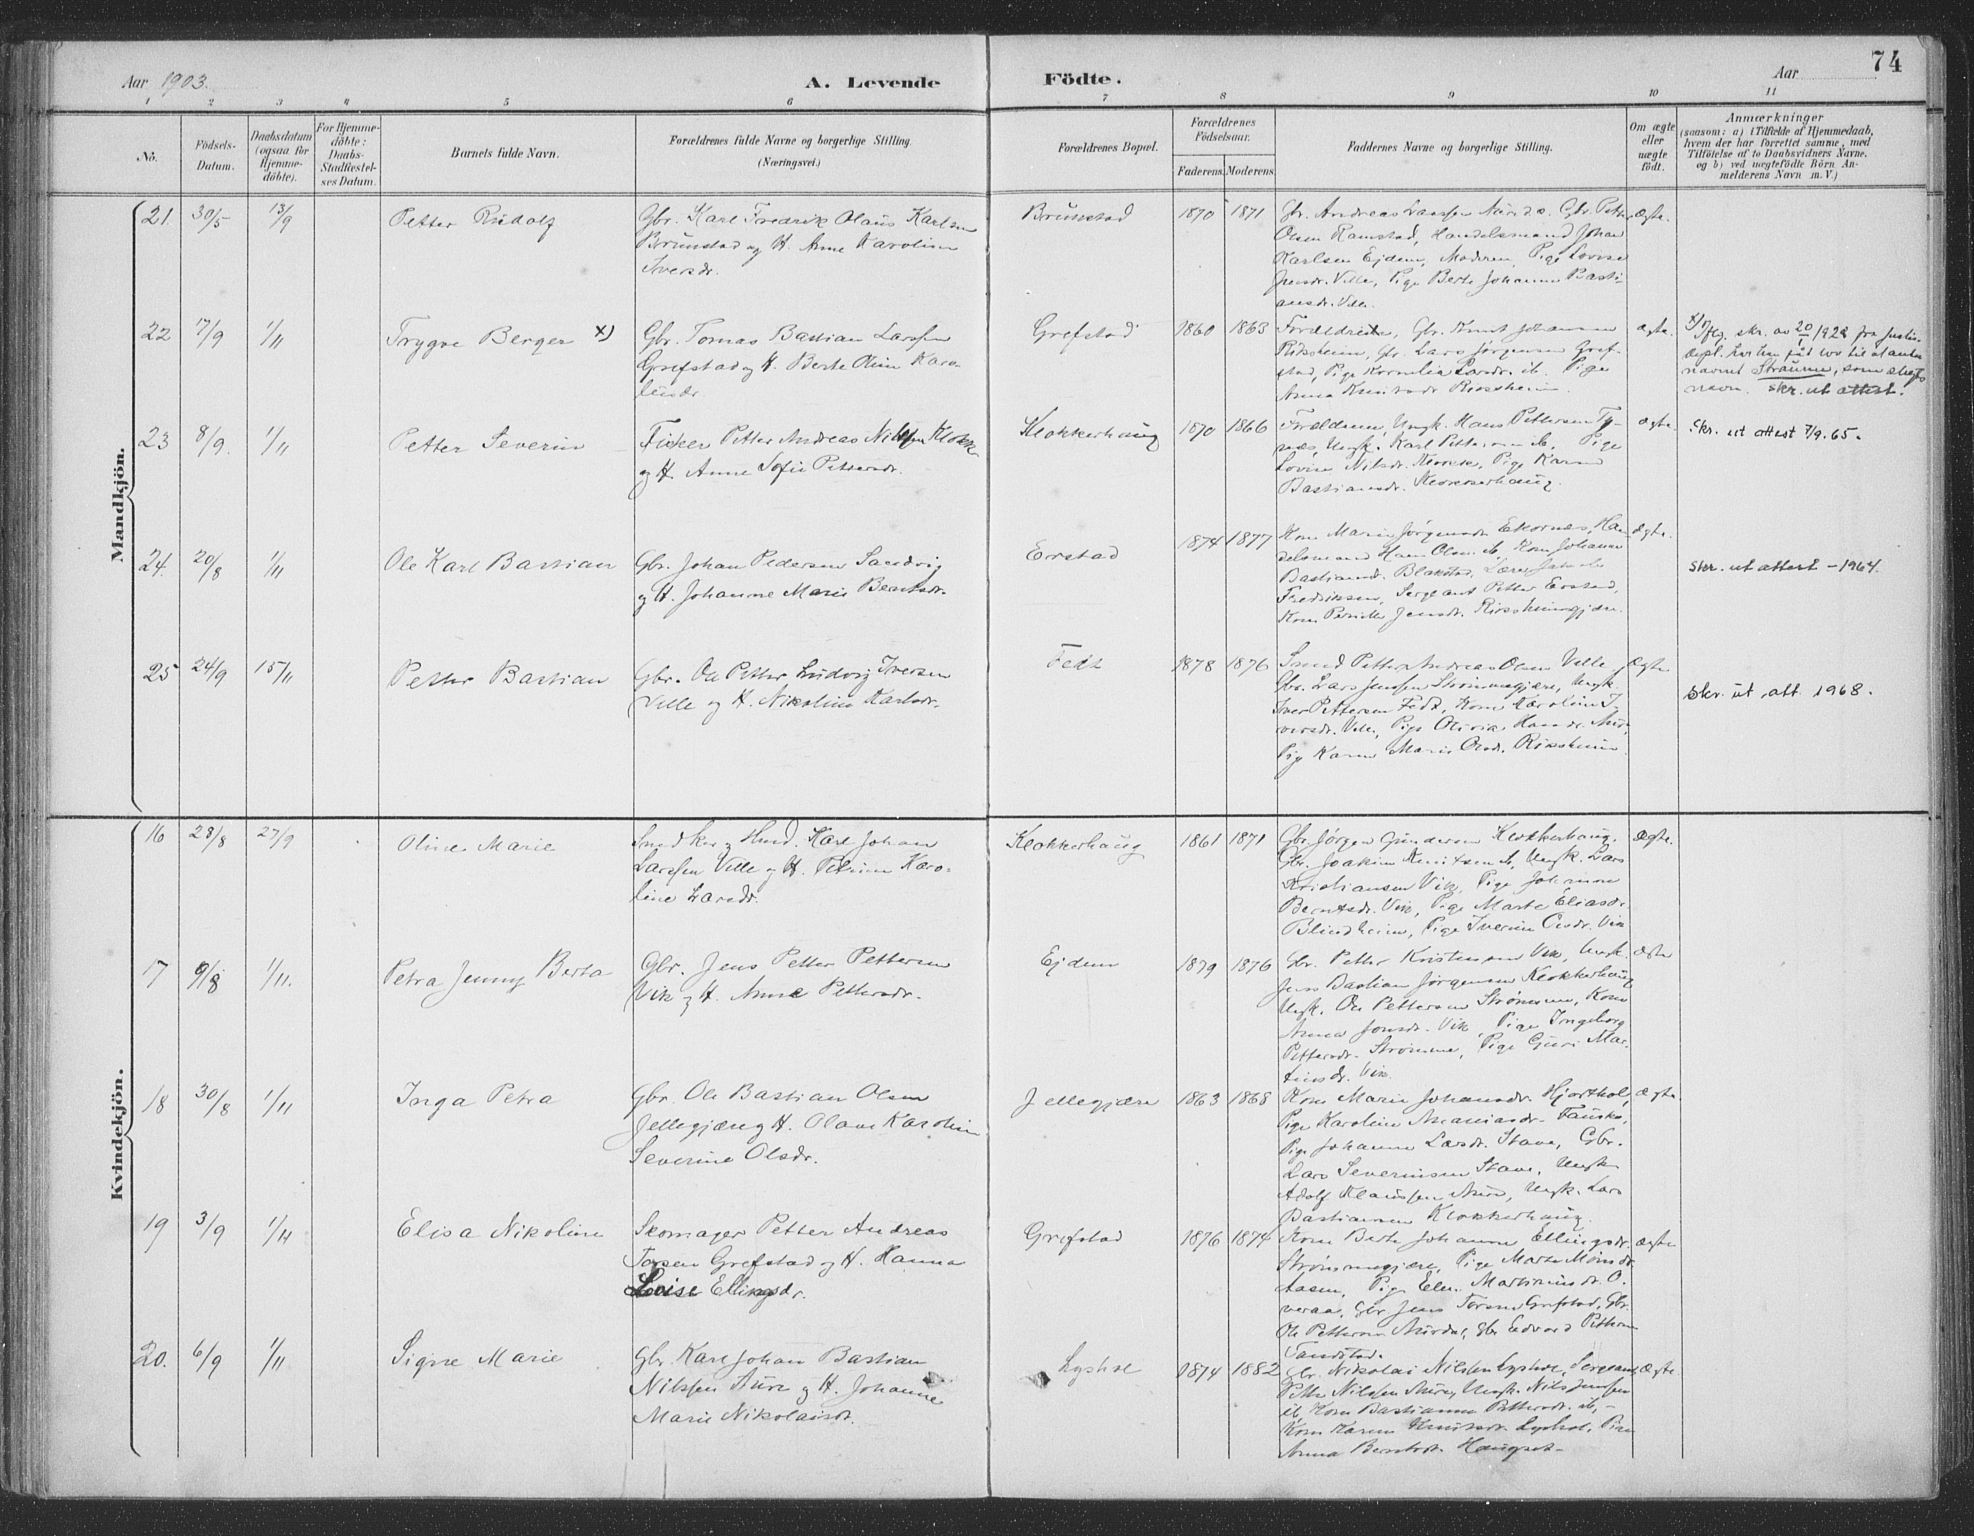 74
Aar 1903.
A. Levende Födte.
Aar
1 2 3 4 5 6 7 8 9 10 11
No.
Födsels-Datum.
Daabsdatum (ogsaa for Hjemme-döbte).
For Hjemme-döbte: Daabs-Stadfæstel-ses Datum.
Barnets fulde Navn.
Forældrenes fulde Navne og borgerlige Stilling.
(Næringsvei.)
Forældrenes Bopæl.
Forældrenes Födselsaar.
Faderens. Moderens.
Faddernes Navne og borgerlige Stilling.
Om ægte eller uægte födt.
Anmærkninger
(saasom: a) i Tilfælde af Hjemmedaab,
hvem der har forrettet samme, med
Tilföielse af to Daabsvidners Navne,
og b) ved uægtefödte Börn An-
melderens Navn m. V.)
Mandkjön.
21 30/5 13/9 Petter Rudolf
Gbr. Karl Fredrik Olaus Karlsen
Brunstad og H. Anne Karoline
Iversdr.
Brunstad 1870 1871
Olsen Ramstad, Handelsmand Johan
Karlsen Ejdem, Moderen, Pige Lovise
Jensdr. Velle, Pige Berte Johanne Basti-
ansdr. Velle.
ægte.
22 17/9 1/11 Trygve Berger x)
Gbr. Tomas Bastian Larssen
Grefstad og H. Berte Oline Karo-
lusdr.
Grefstad 1860 1863
Forældrene, Gbr. Knut Johansen
Riksheim, Gbr. Lars Jørgensen Gref-
stad, Pige Kornelia Larsdr. ib. Pige
Anna Knutsdr. Riksheim.
ægte.
x) Iflg. skr. av 20/1 1922 fra Justis-
dept. har han fåt lov til at anta
navnet Straume, som slegts
navn. skr. ut attest.
23 8/9. 1/11 Petter Severin
Fisker Petter Andreas Nilssen Klokk.
og H. Anne Sofie Pettersdr.
Klokkerhaug 1870 1866
Forældrene, Ungk. Hans Pettersen Ty-
nes, Ungk. Karl Pettersen ib. Pige
Lovise Nilsdr. Klokk., Pige Karen
Bastiansdr. Klokkerhaug.
ægte
Skr. ut attest 7/9. 65.
24. 20/8 1/11 Ole Karl Bastian
Gbr. Johan Pedersen Sandvig
og H. Johanne Marie Berntsdr.
Erstad 1874 1877
Kone Marie Jørgensdr. Ekornes, Han-
delsmand Hans Olsen ib, Kone Johanne
Bastiansdr. Blakstad, Lærer Jakob
Fredriksen, Sergeant Petter Erstad,
Kone Pernille Jensdr. Riksheimgjære.
ægte.
skr. ut attest - 1964.
25 24/9 15/11 Petter Bastian
Gbr. Ole Petter Ludvig Iversen
Velle og H. Nikoline Karlsdr.
Fedt 1878 1876
Smed Petter Andreas Olsen Velle,
Gbr. Lars Jenssen Strømmegjære, Ungk.
Iver Pettersen Fedt, Kone Karoline I-
versdr. Velle, Pige Olivia Hansdr. Aure,
Pige Karen Marie Olsdr. Riksheim.
ægte
skr. ut att. 1968.
Kvindekjön.
16 28/8 27/9 Oline Marie
Snedker og Husmd. Karl Johan
Larssen Velle og H. Petrine Karo-
line Larsdr.
Klokkerhaug 1861 1871
Gbr. Jørgen Gundersen Klokkerhaug.
Gbr. Joakim Knutsen ib, Ungk. Lars
Kristiansen Vik, Pige Johanne
Berntsdr. Vik, Pige Marte Eliasdr.
Blindheim, Pige Iverine Olsdr. Vik
ægte.
17 9/8 1/11. Petra Jenny Berta
Gbr. Jens Petter Pettersen
Vik og H. Anne Pettersdr.
Ejdem 1879 1876
Gbr. Petter Kristensen Vik, Ungk.
Jens Bastian Jørgensen Klokkerhaug
Ungk. Ole Pettersen Strømme, Kone
Anna Jonsdr. Vik, Pige Ingeborg
Pettersdr. Strømme, Pige Guri Mar-
tinsdr. Vik.
ægte
18 30/8 1/11 Inga Petra
Gbr. Ole Bastian Olsen
Jellegjære og H. Olave Karoline
Severine Olsdr.
Jellegjære 1863 1868
Kone Marie Johansdr. Hjorthol,
Pige Karoline Ananiasdr. Fauske,
Pige Johanne Larsdr. Stave, Gbr.
Lars Severinsen Stave, Ungk.
Adolf Klaussen Aure, Ungk. Lars
Bastiansen Klokkerhaug.
ægte.
19 3/9 1/11 Elisa Nikoline
Skomager Petter Andreas
Torsen Grefstad og H. Hanna
Loise Ellingsdr.
Grefstad 1876 1874
Kone Berte Johanne Ellingsdr.
Strømmegjære, Pige Marte Monsdr.
Aasen, Pige Elen Martinusdr. O-
veraa, Gbr. Jens Torsen Grefstad, Gbr.
Ole Pettersen Aurdal, Gbr. Edvard Pettersen
Tandstad.
ægte
20. 6/9 1/11 Signe Marie
Gbr. Karl Johan Bastian
Nilssen Aure og H. Johanne
Marie Nikolaisdr.
Lyshol 1874 1882
Gbr. Nikolai Nilsen Lyshol, Sergeant
Petter Nilssen Aure, Ungk. Nils Jenssen
ib, Kone Bastianne Pettersdr. ib,
Kone Karen Knutsdr. Lyshol, Pige
Anna Berntsdr. Haugset
ægte.